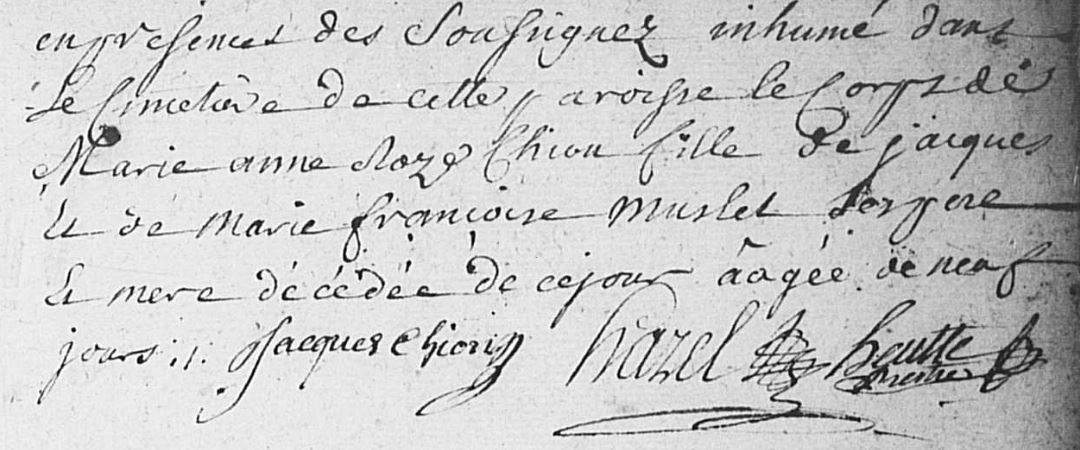 en presences des Soussignez inhumé dans
Le Cimetiere de cette paroisse le Corps de
Marie anne Roze Chiou fille de jacques
Et de Marie françoise Muslet Ses pere
Et mere décédée de ce jour aagée de neuf
jours ;. Jacques Chiorin hazel heutte